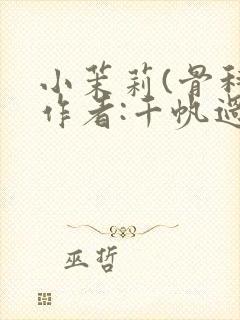 小茉莉(骨科
作者:千帆過
巫哲